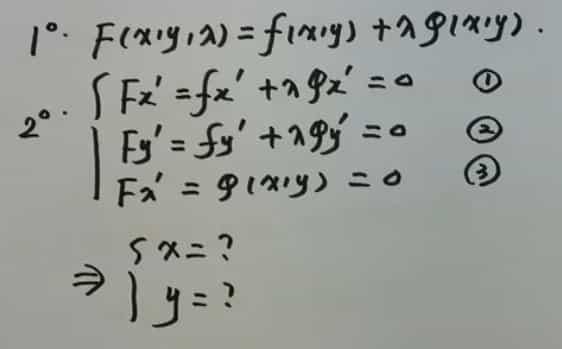 1°. F(x,y,λ)=f(x,y)+λφ(x,y).
2°. { Fx'=fx'+λφx'=0 ①
Fy'=fy'+λφy'=0 ②
Fλ'=φ(x,y)=0 ③
⇒ { x=?
y=?